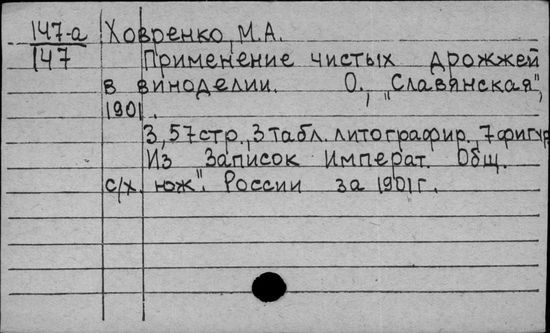 147-а Ховренко, М.А.
147 Применение чистых дрожжей
в виноделии. О., "Славянская",
1901.
3, 57 стр., 3 табл. литографир. 7 фигур
Из Записок Императ. Общ.
с/х. юж". России за 1901 г.